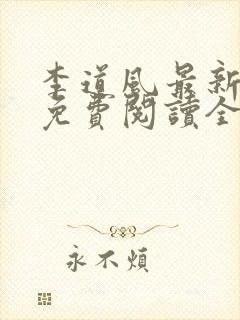 李道風最新
免費閱讀全
永不煩